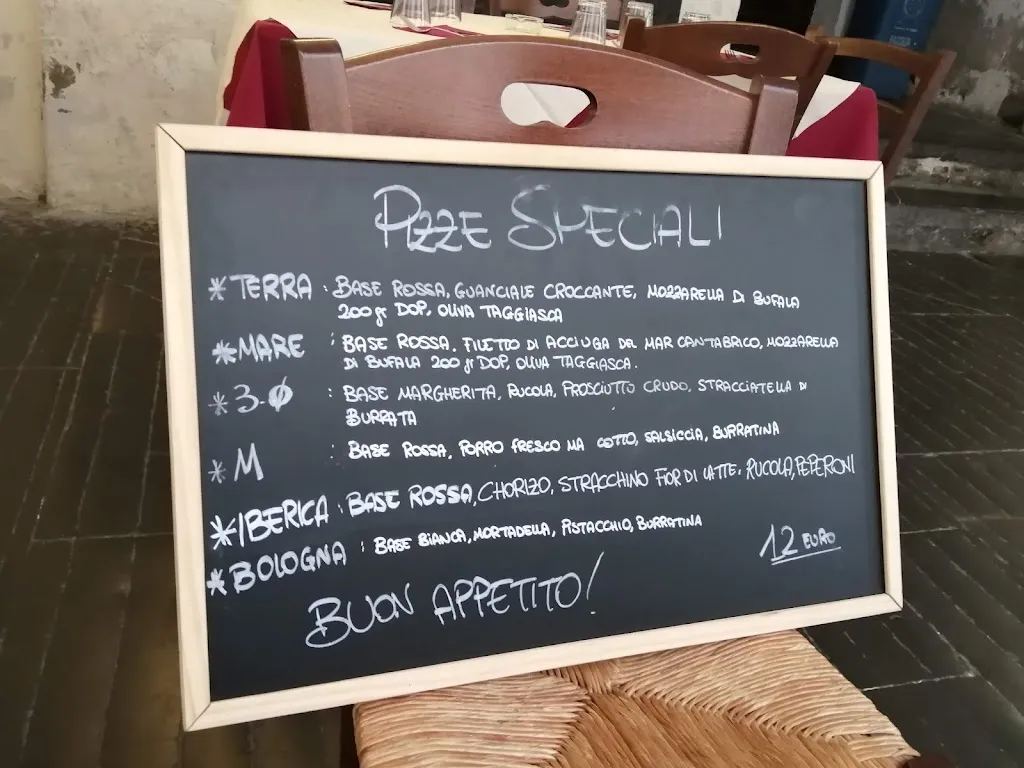 PIZZE SPECIALI
*TERRA : BASE ROSSA, GUANCIALE CROCCANTE, MOZZARELLA DI BUFALA
200 gr DOP, OLIVA TAGGIASCA
*MARE : BASE ROSSA, FILETTO DI ACCIUGA DEL MAR CANTABRICO, MOZZARELLA
DI BUFALA 200 gr DOP, OLIVA TAGGIASCA.
*3.0 : BASE MARGHERITA, RUCOLA, PROSCIUTTO CRUDO, STRACCIATELLA DI
BURRATA
*M BASE ROSSA, PORRO FRESCO MA COTTO, SALSICCIA, BURRATINA
*IBERICA : BASE ROSSA, CHORIZO, STRACCHINO FIOR DI LATTE, RUCOLA, PEPERONI
*BOLOGNA : BASE BIANCA, MORTADELLA, PISTACCHIO, BURRATINA
12 EURO
BUON APPETITO!